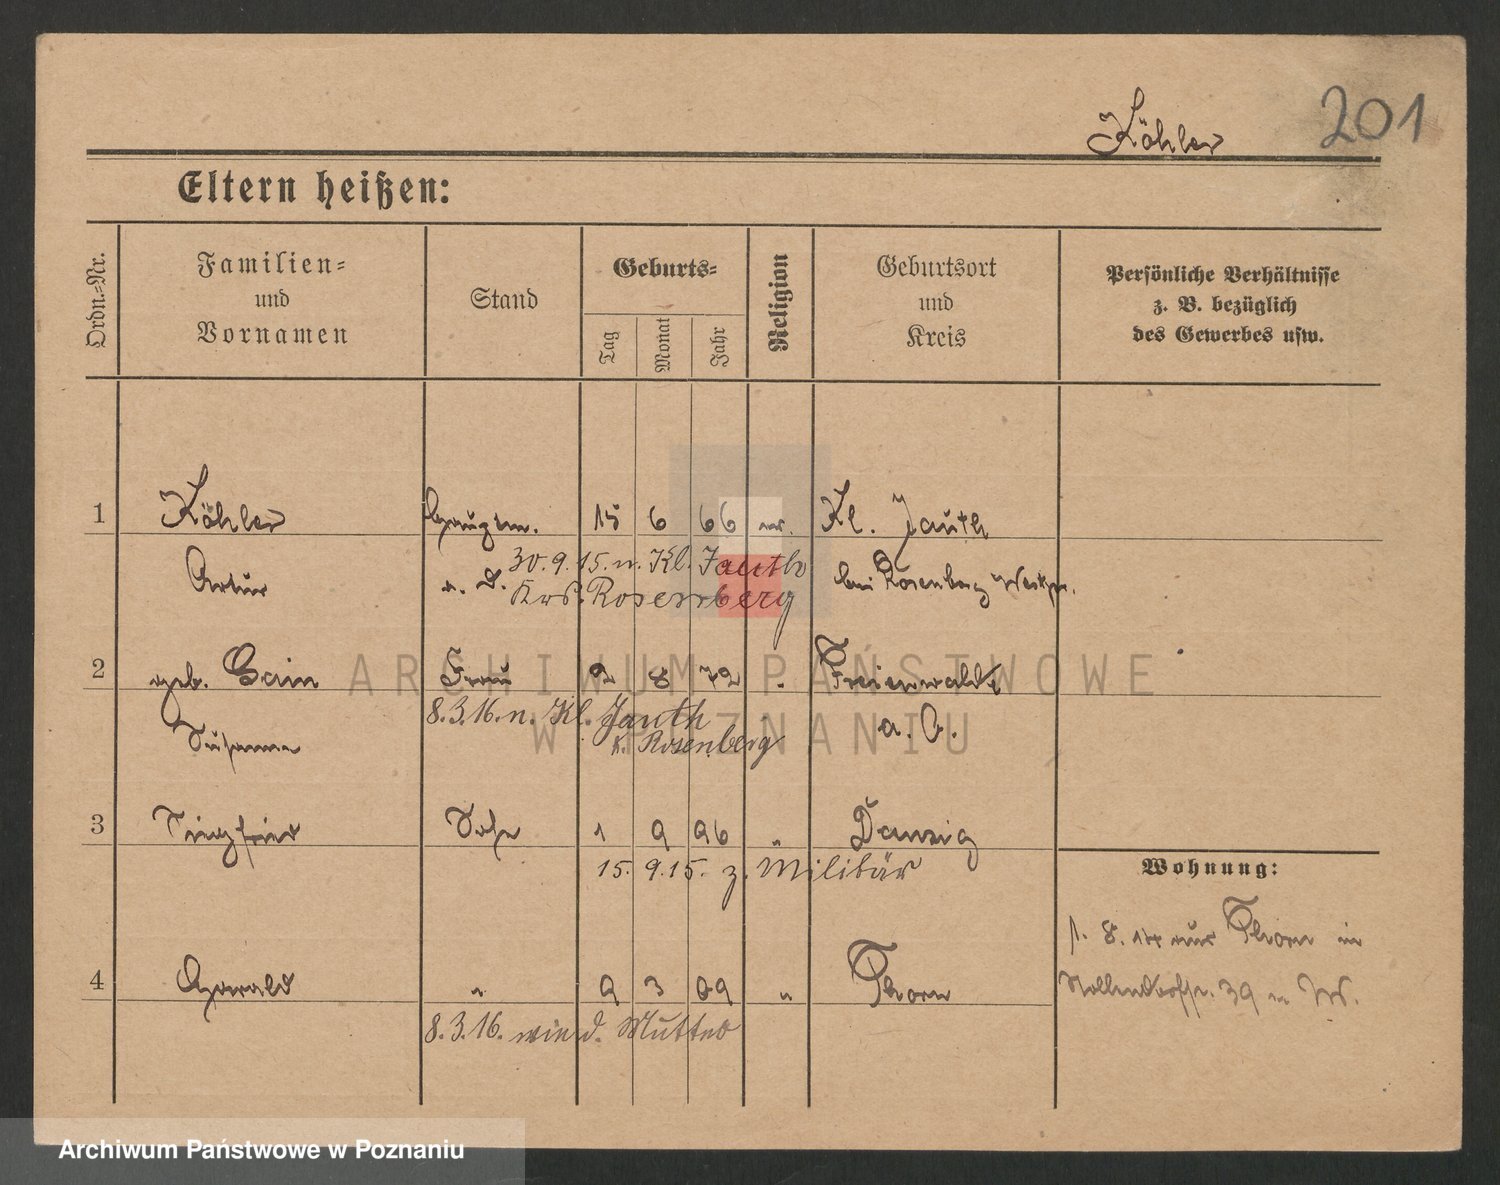 Köhler 201
Eltern heißen:
Ordn.-Nr.
Familien-
und
Vornamen
Stand
Geburts-
Tag
Monat
Jahr
Religion
Geburtsort
und
Kreis
Persönliche Verhältnisse
z. B. bezüglich
des Gewerbes usw.
1 Köhler Hauptm. 15 6 66 ev. Kl. Jauth
Artur a. D. bei Rosenberg Westpr.
30.9.15. n. Kl. Jauth
Krs. Rosenberg
2 geb. Frau 2 8 72 " Freienwalde
8.3.16. n. Kl. Jauth
Susanna K. Rosenberg a. O.
3 Siegfried Sohn 1 9 96 " Danzig
15. 9.15. z. Militär
4 Oswald " 9 3 09 " Thorn
8.3.16. wie d. Mutter
Wohnung:
1. 8. 14 aus Thorn in
39
ARCHIWUM PAŃSTWOWE
W POZNANIU
Archiwum Państwowe w Poznaniu